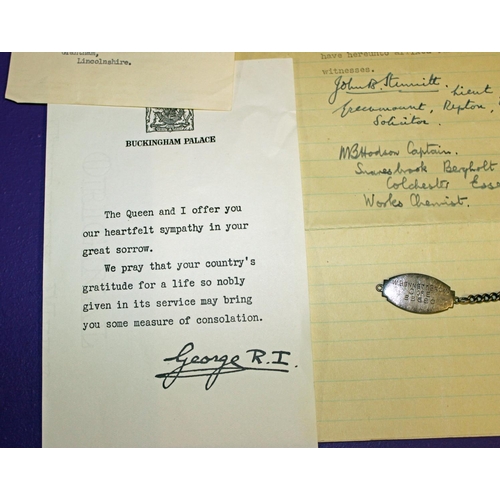 Grantham,
Lincolnshire.
BUCKINGHAM PALACE
The Queen and I offer you
our heartfelt sympathy in your
great sorrow.
We pray that your country's
gratitude for a life so nobly
given in its service may bring
you some measure of consolation.
George R.I.
have hereunto
witnesses.
John B. Stennitt Lieut
Repton,
Solicitor.
MBHodson Captain.
Bergholt
Colchester Esse
Works Chemist.
C OF E